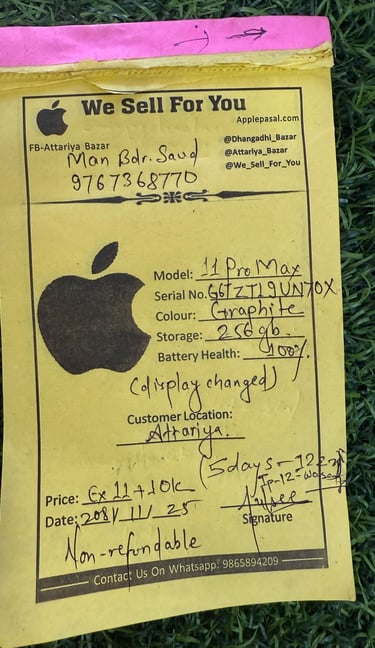 We Sell For You
Applepasal.com
FB-Attariya Bazar
@Dhangadhi_Bazar
Man Bdr. Saud
@Attariya_Bazar
9767368770
@We_Sell_For_You
Model: 11 Pro Max
Serial No. G6TZTL9UN70X
Colour: Graphite
Storage: 256gb.
Battery Health: 100%.
(display changed)
Customer Location:
Attariya.
(5days - 12
Price: Ex 11 + 10k
Date: 2081/11/25
Signature
Non-refundable
Contact Us On Whatsapp: 9865894209